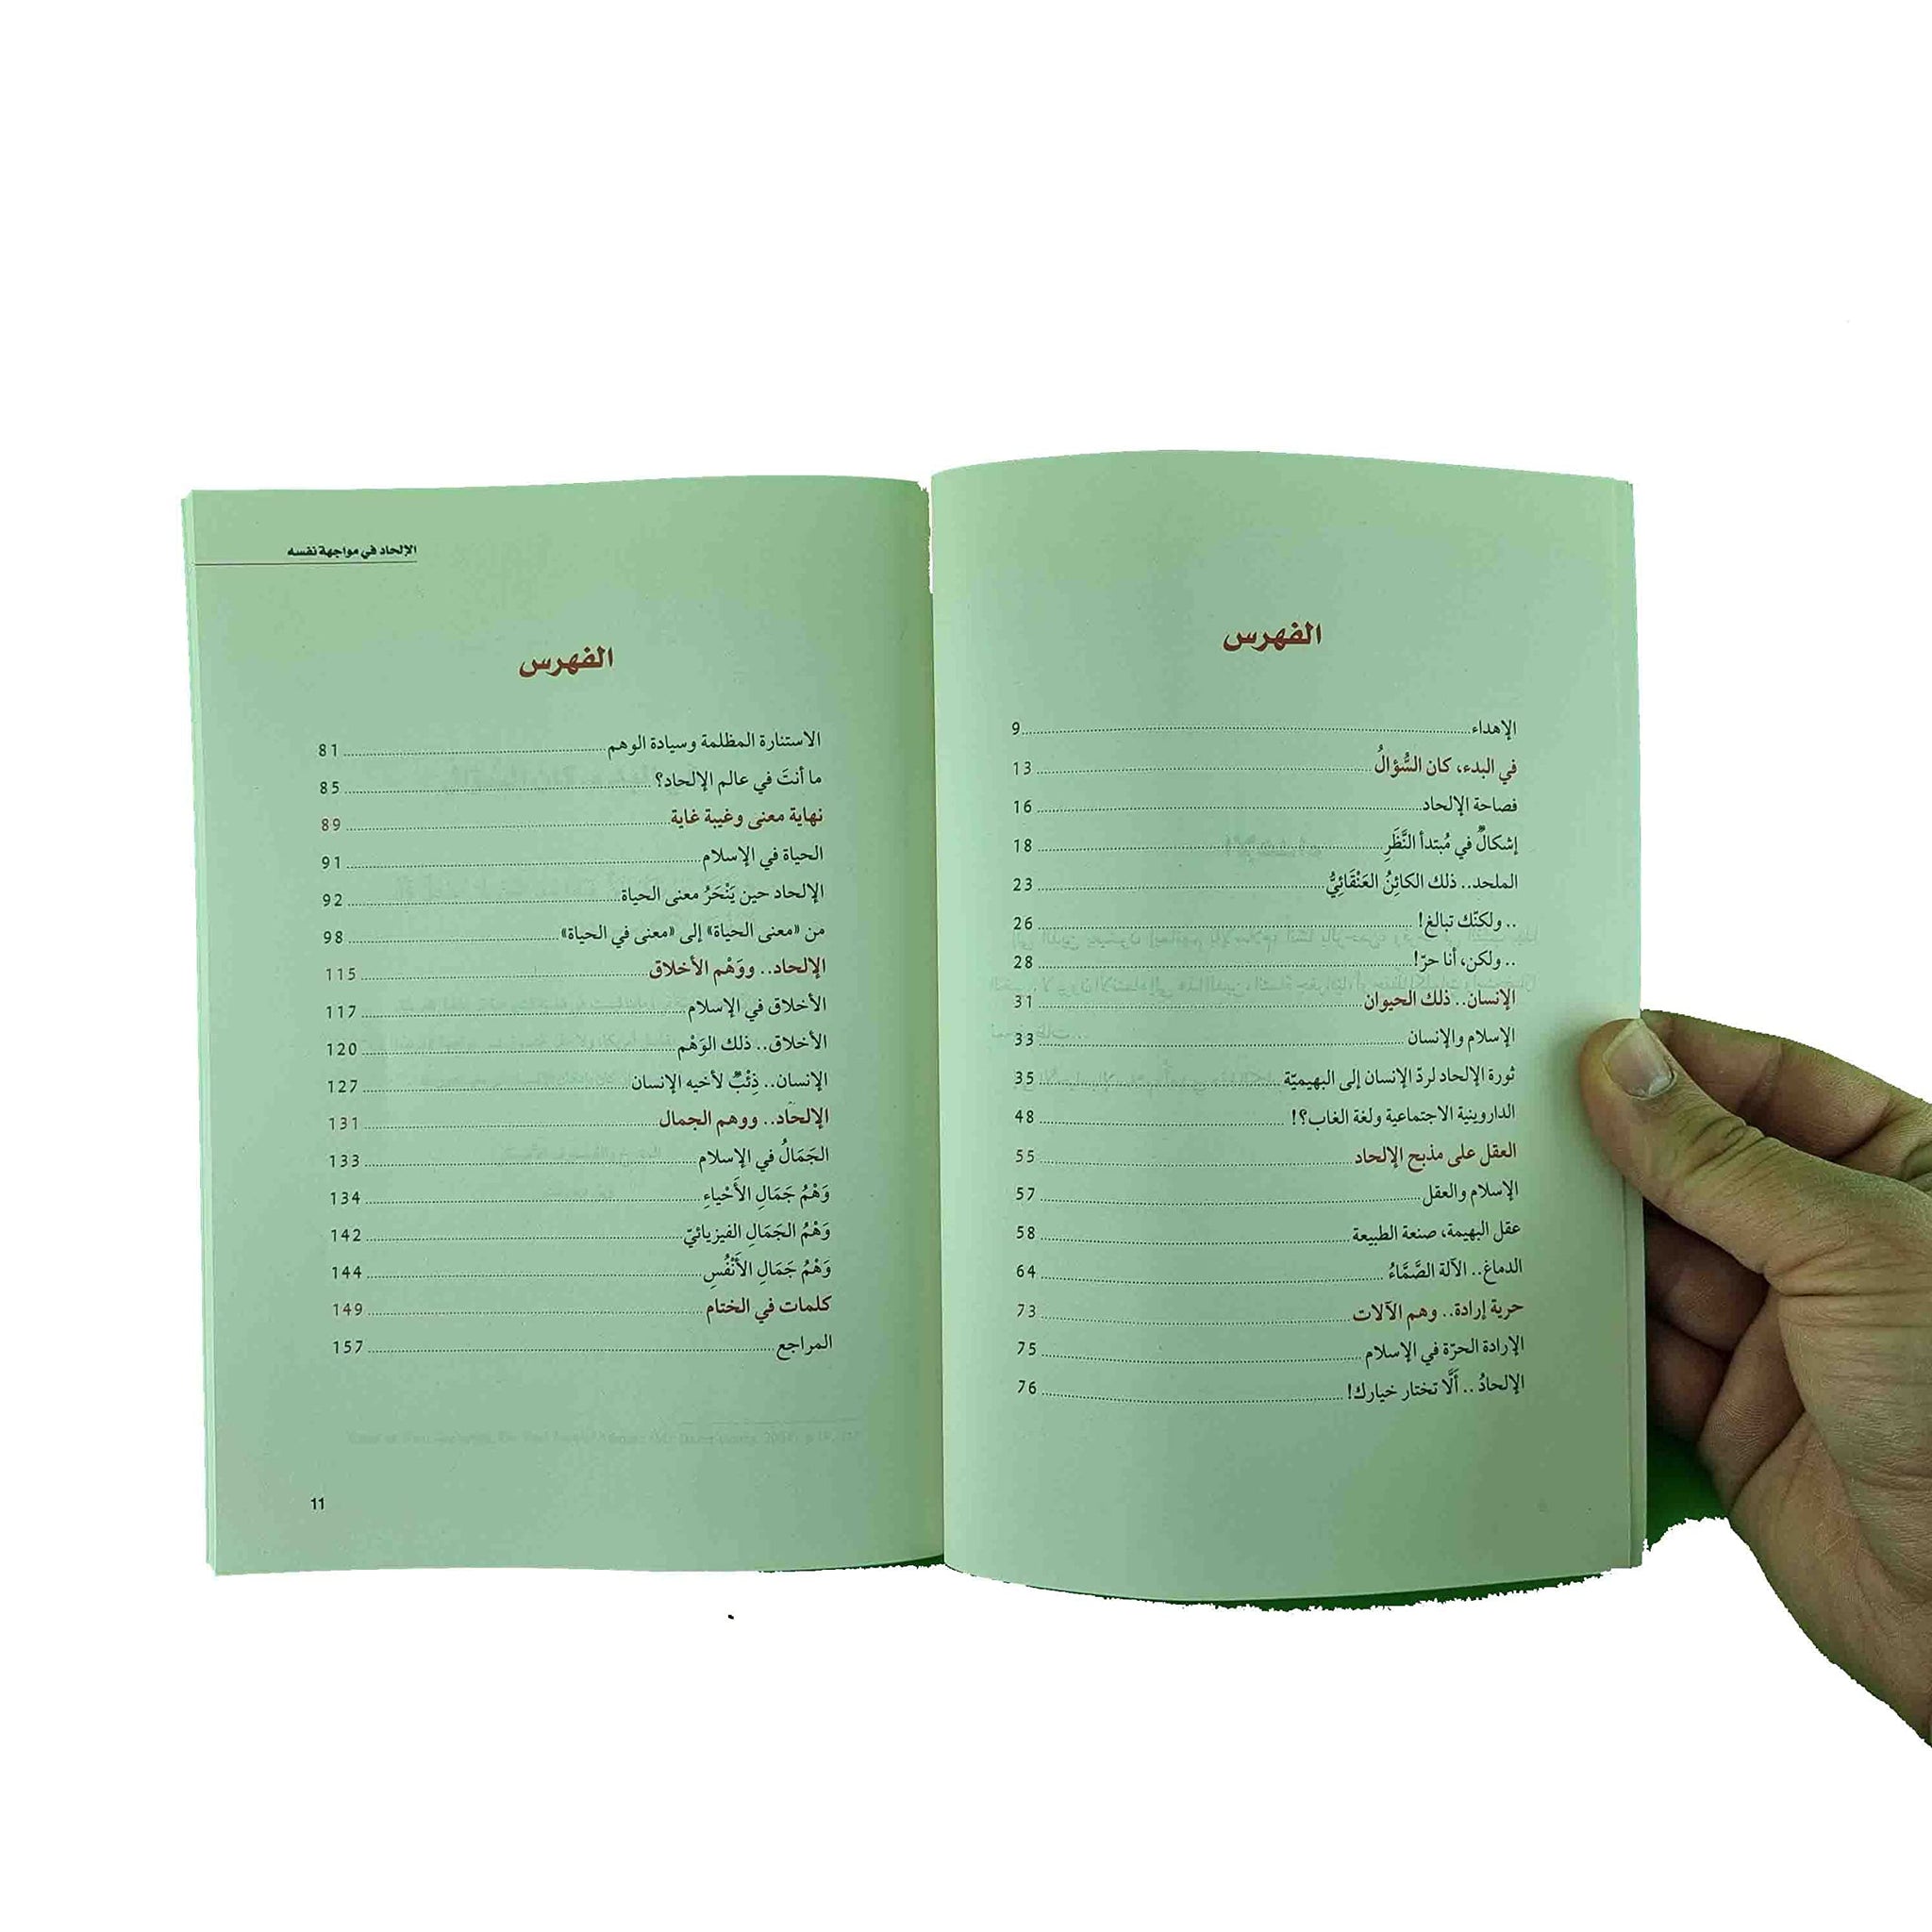 الفهرس
الإهداء 9
في البدء، كان السُّؤالُ 13
فصاحة الإلحاد 16
إشكالٌ في مُبتدأ النَّظَرِ 18
الملحد.. ذلك الكائِنُ العَنْقَائِيُّ 23
.. ولكنّك تبالغ! 26
.. ولكن، أنا حرّ! 28
الإنسان.. ذلك الحيوان 31
الإسلام والإنسان 33
ثورة الإلحاد لردّ الإنسان إلى البهيميّة 35
الداروينية الاجتماعية ولغة الغاب؟! 48
العقل على مذبح الإلحاد 55
الإسلام والعقل 57
عقل البهيمة، صنعة الطبيعة 58
الدماغ.. الآلة الصَّمَّاءُ 64
حرية إرادة.. وهم الآلات 73
الإرادة الحرّة في الإسلام 75
الإلحادُ.. ألَّا تختار خيارك! 76
الإلحاد في مواجهة نفسه
الفهرس
الاستنارة المظلمة وسيادة الوهم 81
ما أنتَ في عالم الإلحاد؟ 85
نهاية معنى وغيبة غاية 89
الحياة في الإسلام 91
الإلحاد حين يَنْحَرُ معنى الحياة 92
من «معنى الحياة» إلى «معنى في الحياة» 98
الإلحاد.. ووَهْم الأخلاق 115
الأخلاق في الإسلام 117
الأخلاق.. ذلك الوَهْم 120
الإنسان.. ذِئْبٌ لأخيه الإنسان 127
الإلحَاد.. ووهم الجمال 131
الجَمَالُ في الإسلام 133
وَهْمُ جَمَالِ الأَحْياءِ 134
وَهْمُ الجَمَالِ الفيزيائيّ 142
وَهْمُ جَمَالِ الأَنْفُسِ 144
كلمات في الختام 149
المراجع 157
11